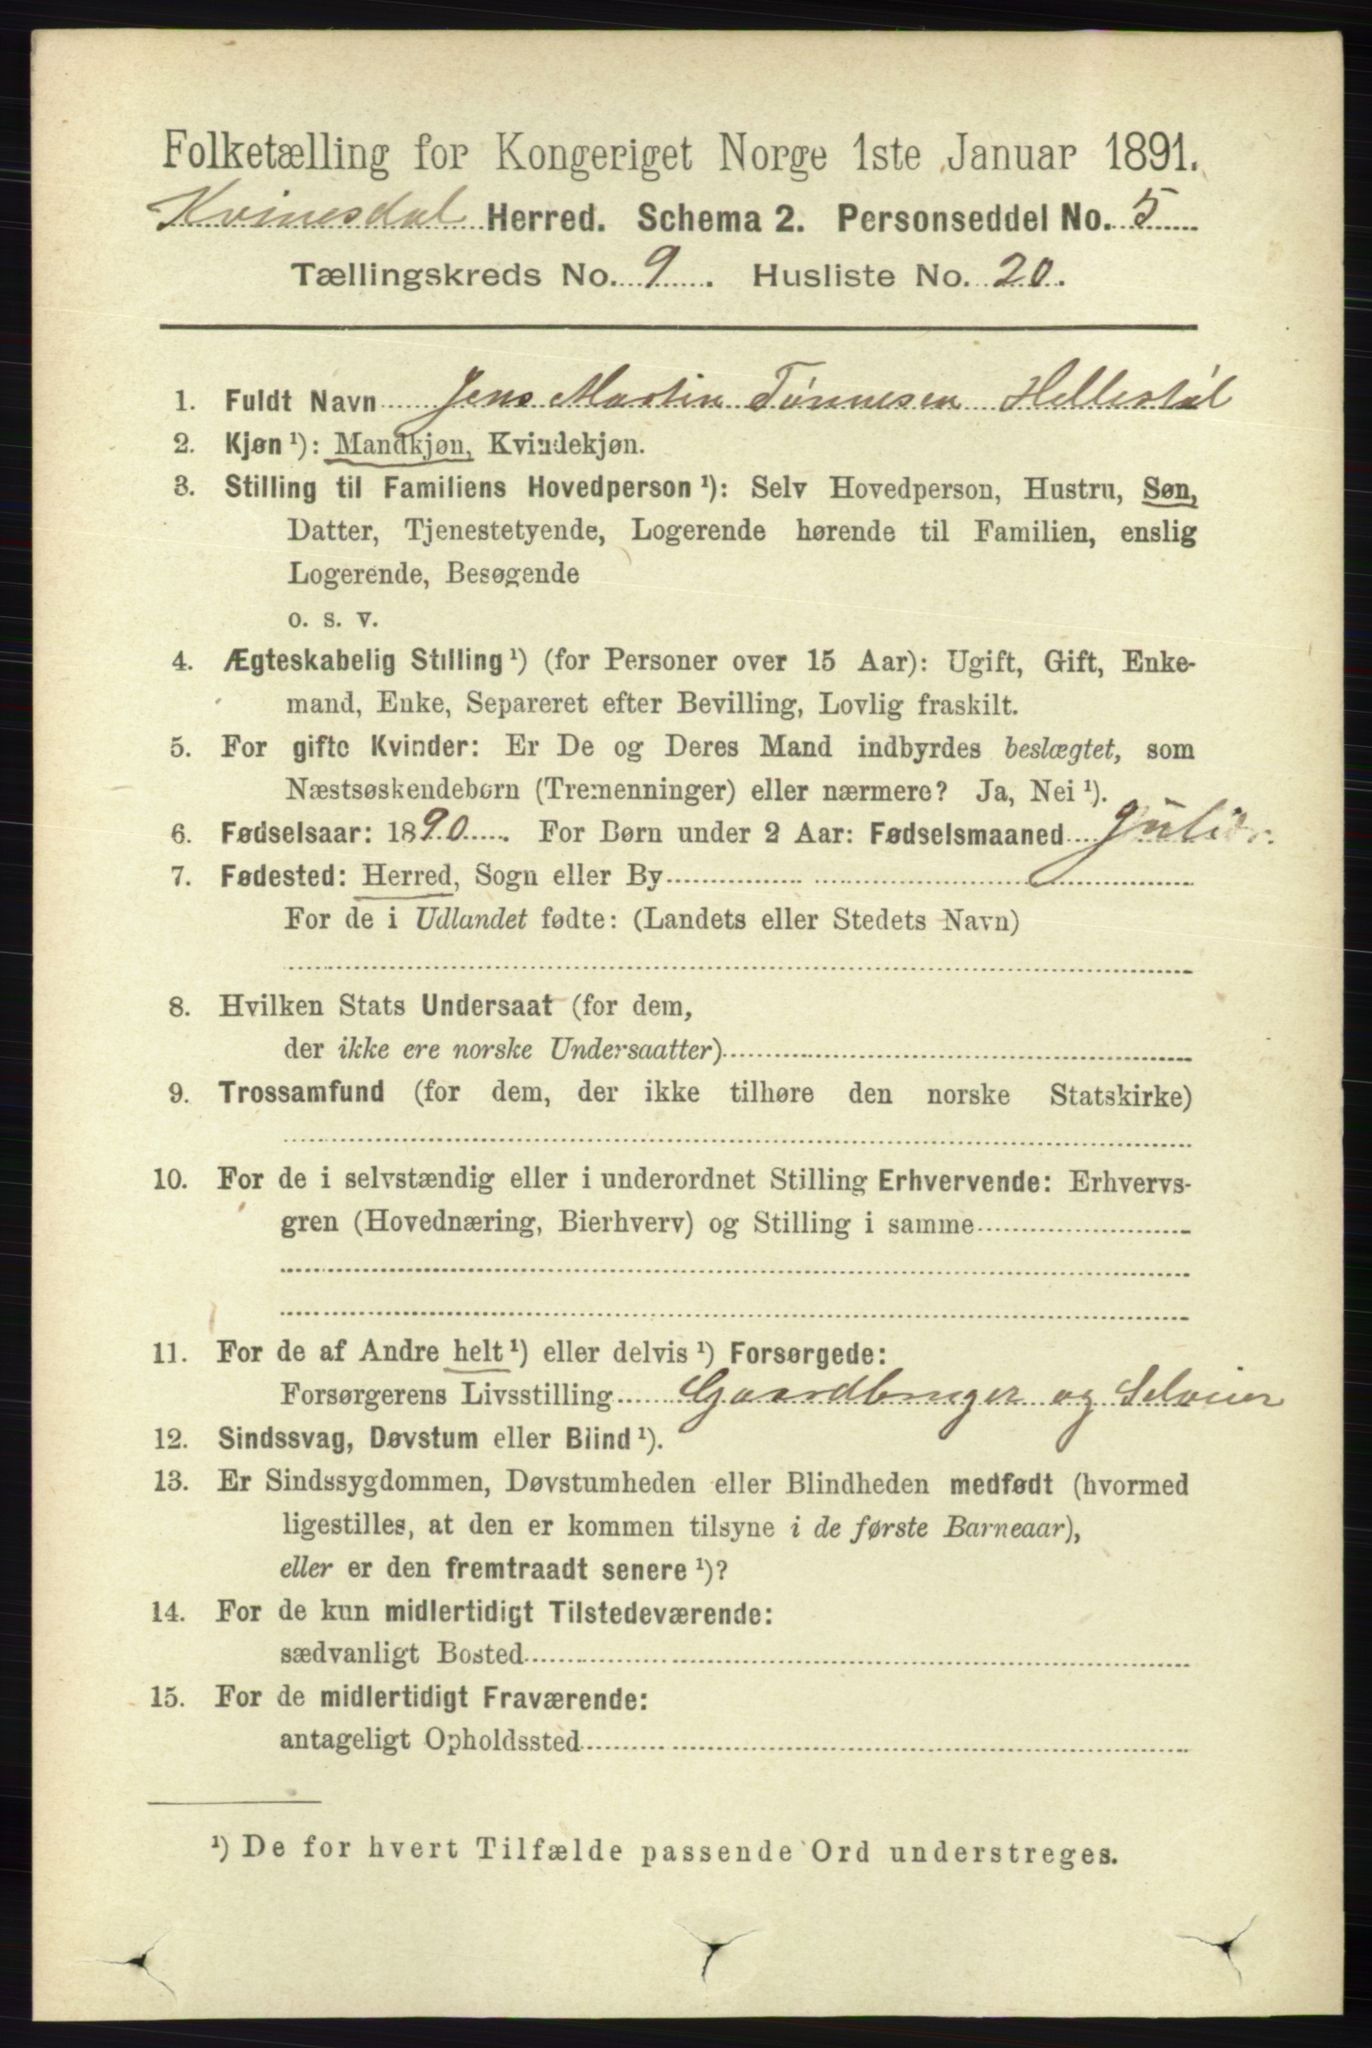 Folketælling for Kongeriget Norge 1ste Januar 1891.
Kvinesdal Herred. Schema 2. Personseddel No. 5
Tællingskreds No. 9. Husliste No. 20.
1. Fuldt Navn Jens Martin Tønnesen Hellestøl
2. Kjøn¹): Mandkjøn, Kvindekjøn.
3. Stilling til Familiens Hovedperson¹): Selv Hovedperson, Hustru, Søn,
Datter, Tjenestetyende, Logerende hørende til Familien, enslig
Logerende, Besøgende
o. s. v.
4. Ægteskabelig Stilling¹) (for Personer over 15 Aar): Ugift, Gift, Enke-
mand, Enke, Separeret efter Bevilling, Lovlig fraskilt.
5. For gifte Kvinder: Er De og Deres Mand indbyrdes beslægtet, som
Næstsøskendebørn (Tremenninger) eller nærmere? Ja, Nei¹).
6. Fødselsaar: 1890. For Børn under 2 Aar: Fødselsmaaned Juli
7. Fødested: Herred, Sogn eller By
For de i Udlandet fødte: (Landets eller Stedets Navn)
8. Hvilken Stats Undersaat (for dem,
der ikke ere norske Undersaatter)
9. Trossamfund (for dem, der ikke tilhøre den norske Statskirke)
10. For de i selvstændig eller i underordnet Stilling Erhvervende: Erhvervs-
gren (Hovednæring, Bierhverv) og Stilling i samme
11. For de af Andre helt¹) eller delvis¹) Forsørgede:
Forsørgerens Livsstilling Gaardbruger og Selveier
12. Sindssvag, Døvstum eller Blind¹).
13. Er Sindssygdommen, Døvstumheden eller Blindheden medfødt (hvormed
ligestilles, at den er kommen tilsyne i de første Barneaar),
eller er den fremtraadt senere¹)?
14. For de kun midlertidigt Tilstedeværende:
sædvanligt Bosted
15. For de midlertidigt Fraværende:
antageligt Opholdssted
¹) De for hvert Tilfælde passende Ord understreges.